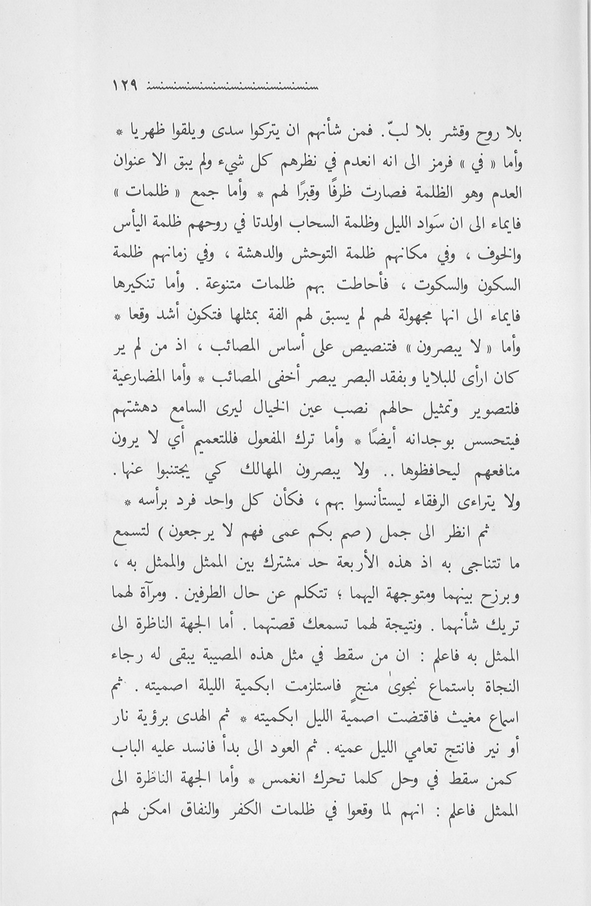 ١٢٩
بلا روح وقشر بلا لبّ. فمن شأنهم ان يتركوا سدى ويلقوا ظهريا *
وأما « في » فرمز الى انه انعدم في نظرهم كل شيء ولم يبق الا عنوان
العدم وهو الظلمة فصارت ظرفًا وقبرًا لهم * وأما جمع « ظلمات »
فايماء الى ان سَواد الليل وظلمة السحاب اولدتا في روحهم ظلمة اليأس
والخوف ، وفي مكانهم ظلمة التوحش والدهشة ، وفي زمانهم ظلمة
السكون والسكوت ، فأحاطت بهم ظلمات متنوعة . وأما تنكيرها
فايماء الى انها مجهولة لهم لم يسبق لهم الفة بمثلها فتكون أشد وقعا *
وأما « لا يبصرون » فتنصيص على أساس المصائب ، اذ من لم ير
كان ارأى للبلايا وبفقد البصر يبصر أخفى المصائب * وأما المضارعية
فلتصوير وتمثيل حالهم نصب عين الخيال ليرى السامع دهشتهم
فيتحسس بوجدانه أيضًا * وأما ترك المفعول فللتعميم أي لا يرون
منافعهم ليحافظوها .. ولا يبصرون المهالك كي يجتنبوا عنها.
ولا يتراءى الرفقاء ليستأنسوا بهم ، فكأن كل واحد فرد برأسه *
ثم انظر الى جمل ( صم بكم عمى فهم لا يرجعون ) لتسمع
ما تتناجى به اذ هذه الأربعة حد مشترك بين الممثل والممثل به ،
وبرزح بينهما ومتوجهة اليهما ؛ تتكلم عن حال الطرفين . ومرآة لهما
تريك شأنهما . ونتيجة لهما تسمعك قصتهما . أما الجهة الناظرة الى
الممثل به فاعلم : ان من سقط في مثل هذه المصيبة يبقى له رجاء
النجاة باستماع نجوىٰ منجٍ فاستلزمت ابكمية الليلة اصميته . ثم
اسماع مغيث فاقتضت اصمية الليل ابكميته * ثم الهدى برؤية نار
أو نير فانتج تعامي الليل عميَه . ثم العود الى بدأ فانسد عليه الباب
كمن سقط في وحل كلما تحرك انغمس * وأما الجهة الناظرة الى
الممثل فاعلم : انهم لما وقعوا في ظلمات الكفر والنفاق امكن لهم